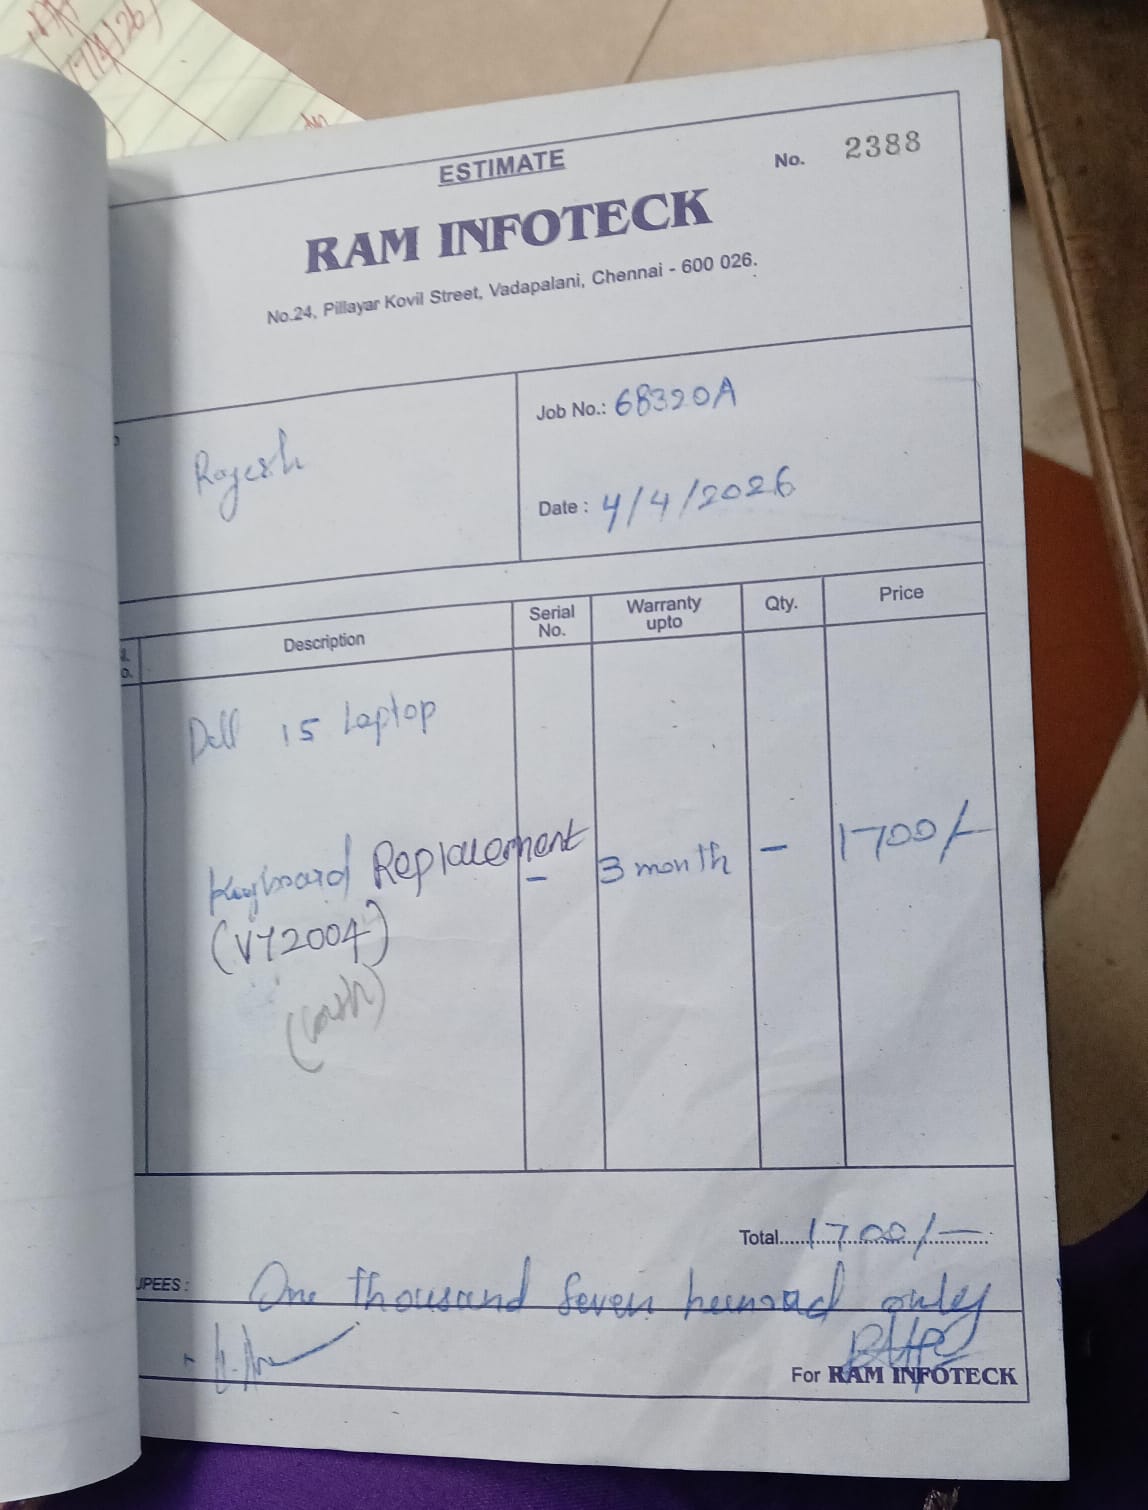 ESTIMATE
No. 2388
RAM INFOTECK
No.24, Pillayar Kovil Street, Vadapalani, Chennai - 600 026.
Rajesh
Job No.: 68320A
Date : 4/4/2026
Description
Serial No.
Warranty upto
Qty.
Price
Dell 15 Laptop
Keyboard Replacement - 3 month - 1700/-
(VY2004)
Total 1700/-
UPEES : One thousand Seven hunnad only
For RAM INFOTECK